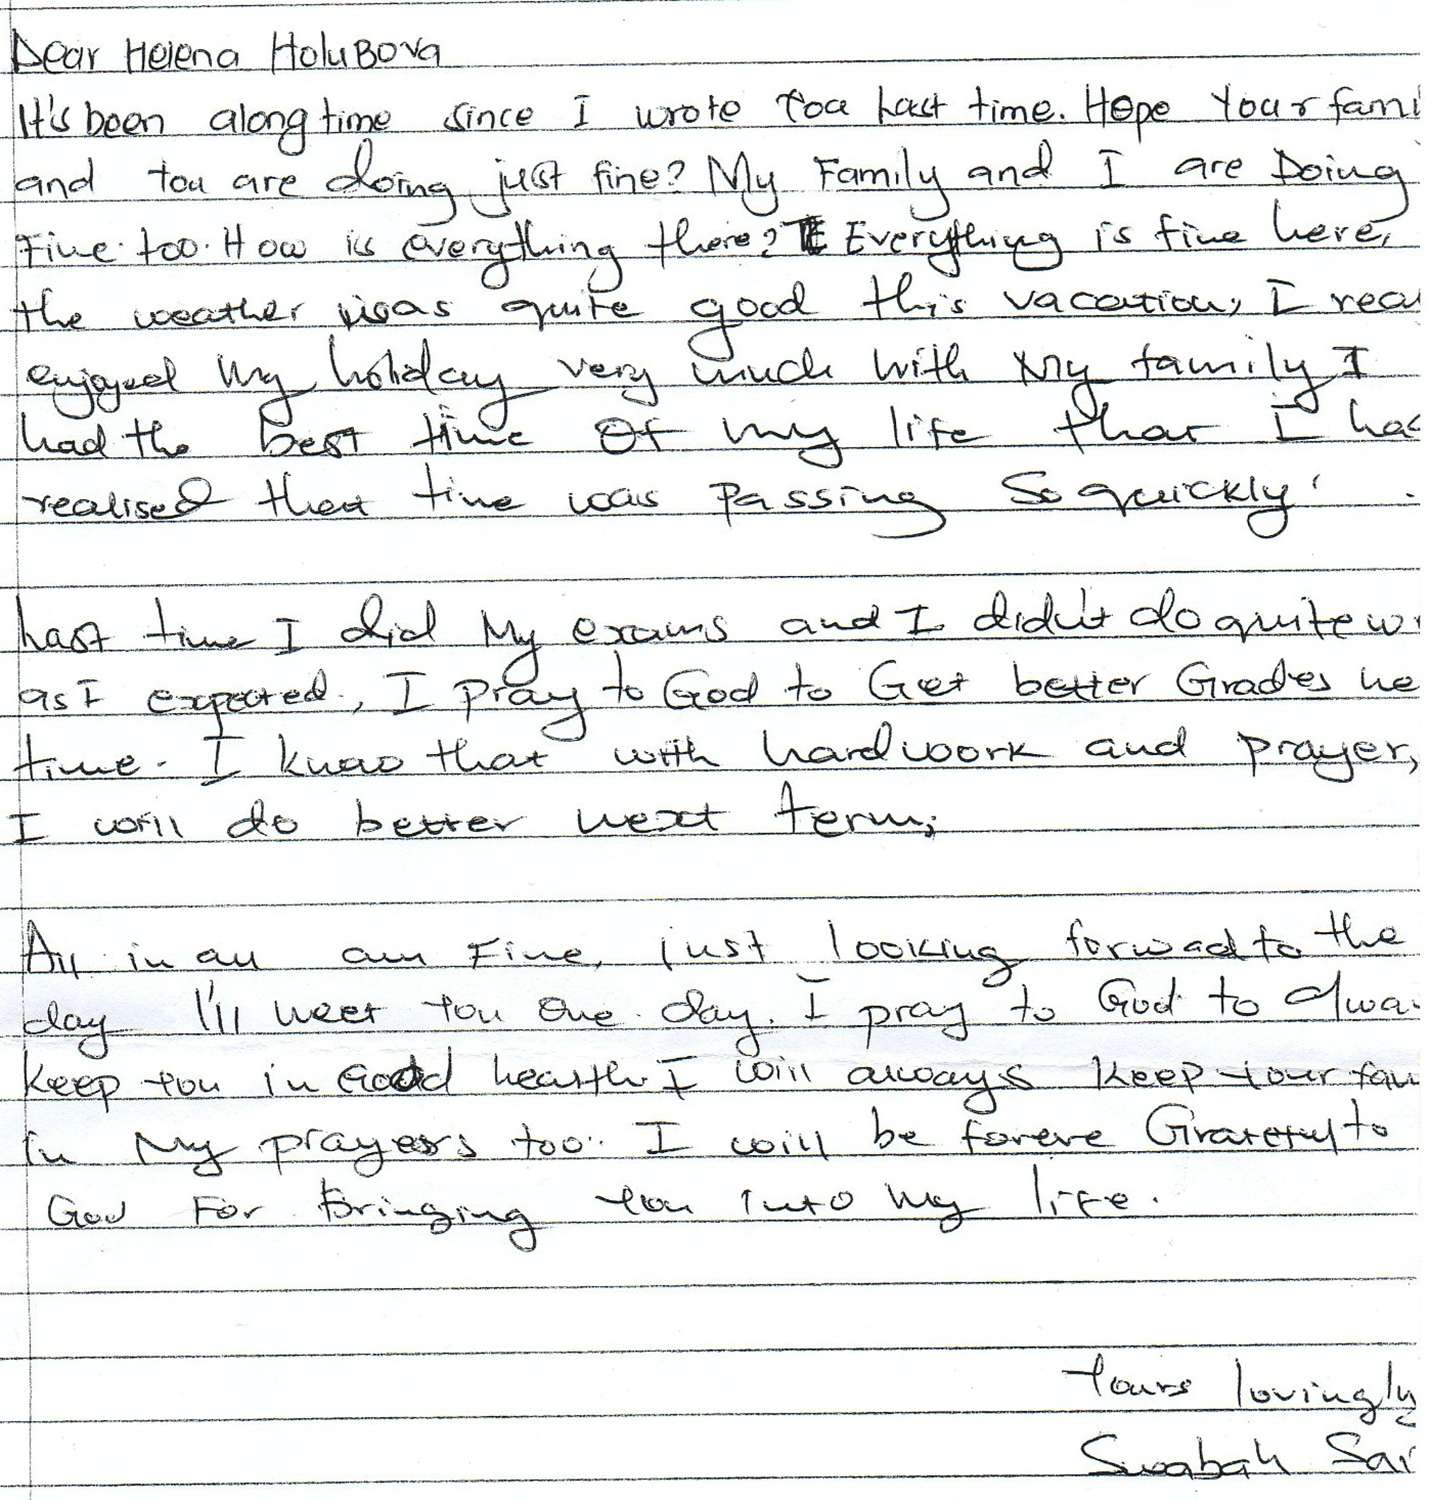 Dear Helena Holubova
It's been along time since I wrote You Last time. Hope Your fami
and You are doing just fine? My Family and I are Doing
Fine too. How is everything there? Everything is fine here,
the weather was quite good this vacation, I rea
enjoyed My holiday very much with My family I
had the best time Of my life that I ha
realised that time was Passing So quickly.
Last time I did My exams and I didn't do quite w
as I expected, I pray to God to Get better Grades ne
time. I know that with hardwork and prayer,
I will do better next term;
All in all am Fine, just looking forwad to the
day I'll meet You One day. I pray to God to Alwa
Keep You in Good health I will always Keep Your fam
in My prayers too. I will be foreve Grateful to
God For Bringing You into My life.
Yours lovingly
Swabah Sai